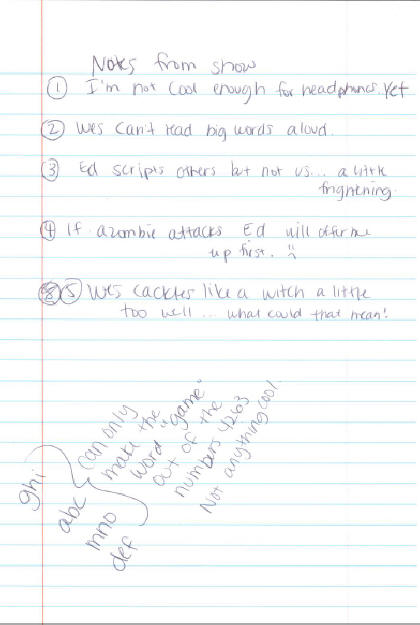 Notes from show
① I'm not cool enough for headphones. Yet
② Wes can't read big words aloud.
③ Ed scripts others but not us... a little
frightening.
④ If a zombie attacks Ed will offer me
up first.
⑤ Wes cackles like a witch a little
too well... what could that mean!
ghi
abc
mno
def
can only
make the
word "game"
out of the
numbers 4263
Not anything cool.